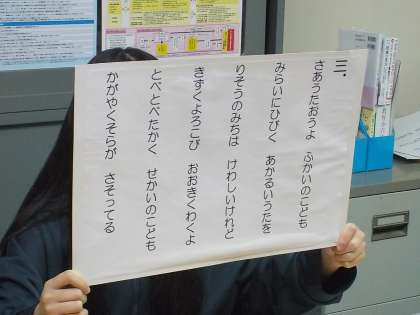 三.
さあうたおうよ　ふかいのこども
みらいにひびく　あかるいうたを
りそうのみちは　けわしいけれど
きずくよろこび　おおきくわくよ
とべとべたかく　せかいのこども
かがやくそらが　さそってる